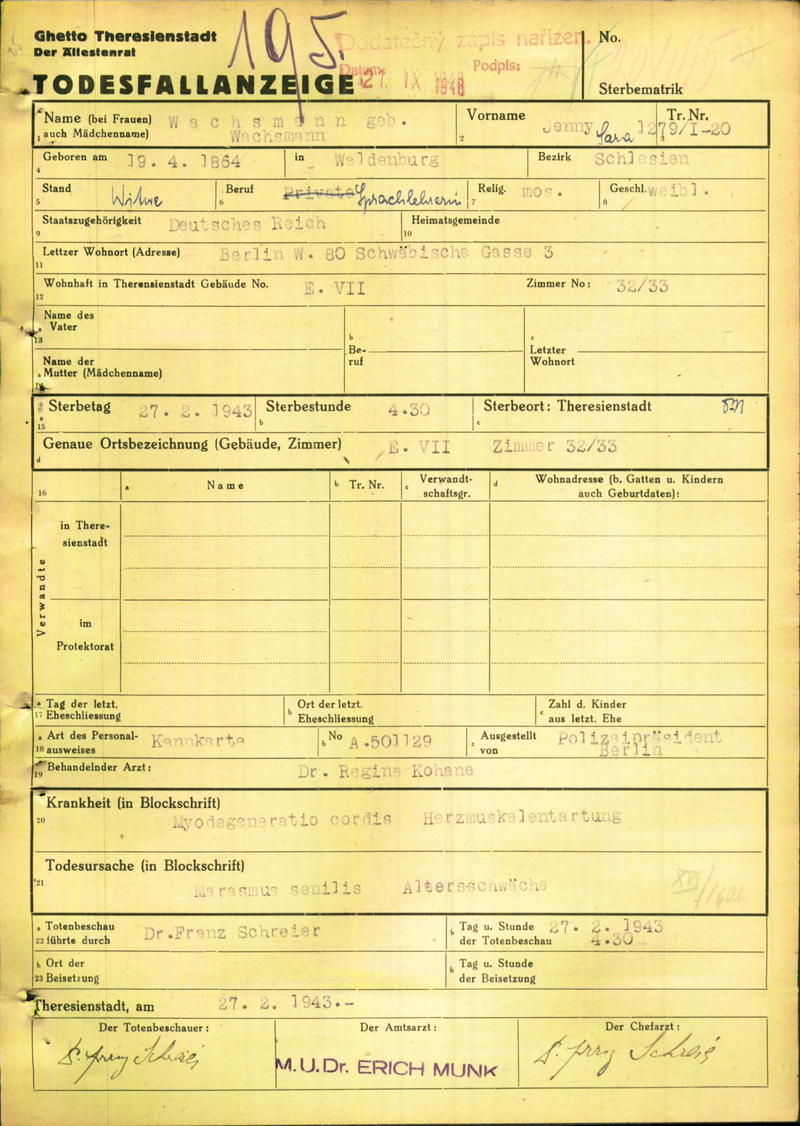 Ghetto Theresienstadt
Der Ältestenrat
TODESFALLANZEIGE
195
Dodatečný zápis nařízen.
Datum: 27. IX 1948 Podpis:
No.
Sterbematrik
Name (bei Frauen) Wachsmann geb.
1 auch Mädchenname) Wachsmann
Vorname
2 Jenny Sara
Tr. Nr.
3 1279/I-20
4 Geboren am 19. 4. 1864 in Waldenburg Bezirk Schlesien
5 Stand Witwe 6 Beruf Private Sprachlehrerin 7 Relig. mos. 8 Geschl. weibl.
9 Staatszugehörigkeit Deutsches Reich 10 Heimatsgemeinde
11 Lettzer Wohnort (Adresse) Berlin W. 80 Schwäbische Gasse 3
12 Wohnhaft in Therensienstadt Gebäude No. E. VII Zimmer No: 32/33
13 a Name des Vater b Beruf c Letzter Wohnort
a Name der Mutter (Mädchenname)
15 a Sterbetag 27. 2. 1943 b Sterbestunde 4.30 c Sterbeort: Theresienstadt
d Genaue Ortsbezeichnung (Gebäude, Zimmer) E. VII Zimmer 32/33
16 a Name b Tr. Nr. c Verwandtschaftsgr. d Wohnadresse (b. Gatten u. Kindern auch Geburtdaten):
Verwandte
in Theresienstadt
im Protektorat
17 a Tag der letzt. Eheschliessung b Ort der letzt. Eheschliessung c Zahl d. Kinder aus letzt. Ehe
18 a Art des Personalausweises Kennkarte b No A.501129 c Ausgestellt von Polizeipräsident Berlin
19 Behandelnder Arzt: Dr. Regine Kohane
20 Krankheit (in Blockschrift)
Myodegeneratio cordis Herzmuskelentartung
21 Todesursache (in Blockschrift)
Marasmus senilis Altersschwäche
22 a Totenbeschau führte durch Dr.Franz Schreier b Tag u. Stunde der Totenbeschau 27. 2. 1943 4.30
23 b Ort der Beisetzung b Tag u. Stunde der Beisetzung
Theresienstadt, am 27. 2. 1943.-
Der Totenbeschauer: Der Amtsarzt: Der Chefarzt:
M.U.Dr. ERICH MUNK